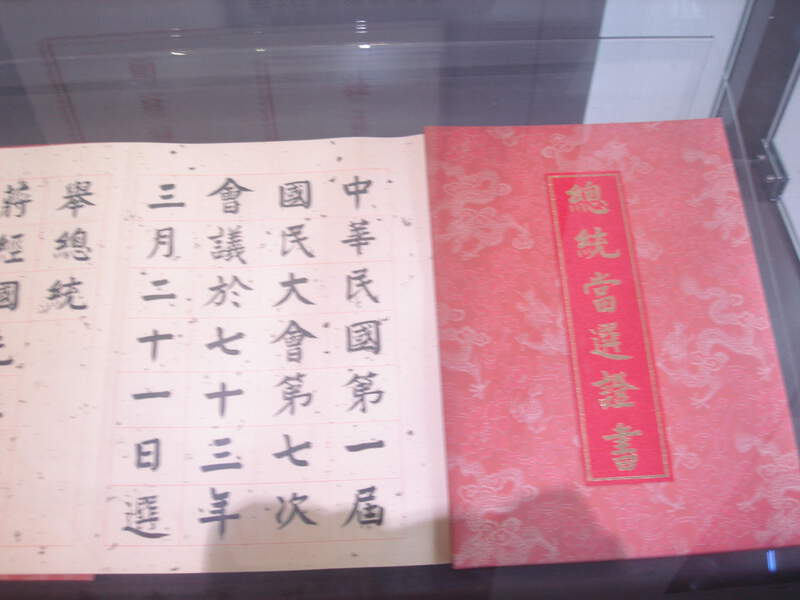 總統當選證書
中華民國第一屆
國民大會第七次
會議於七十三年
三月二十一日選
舉總統
蔣經國先